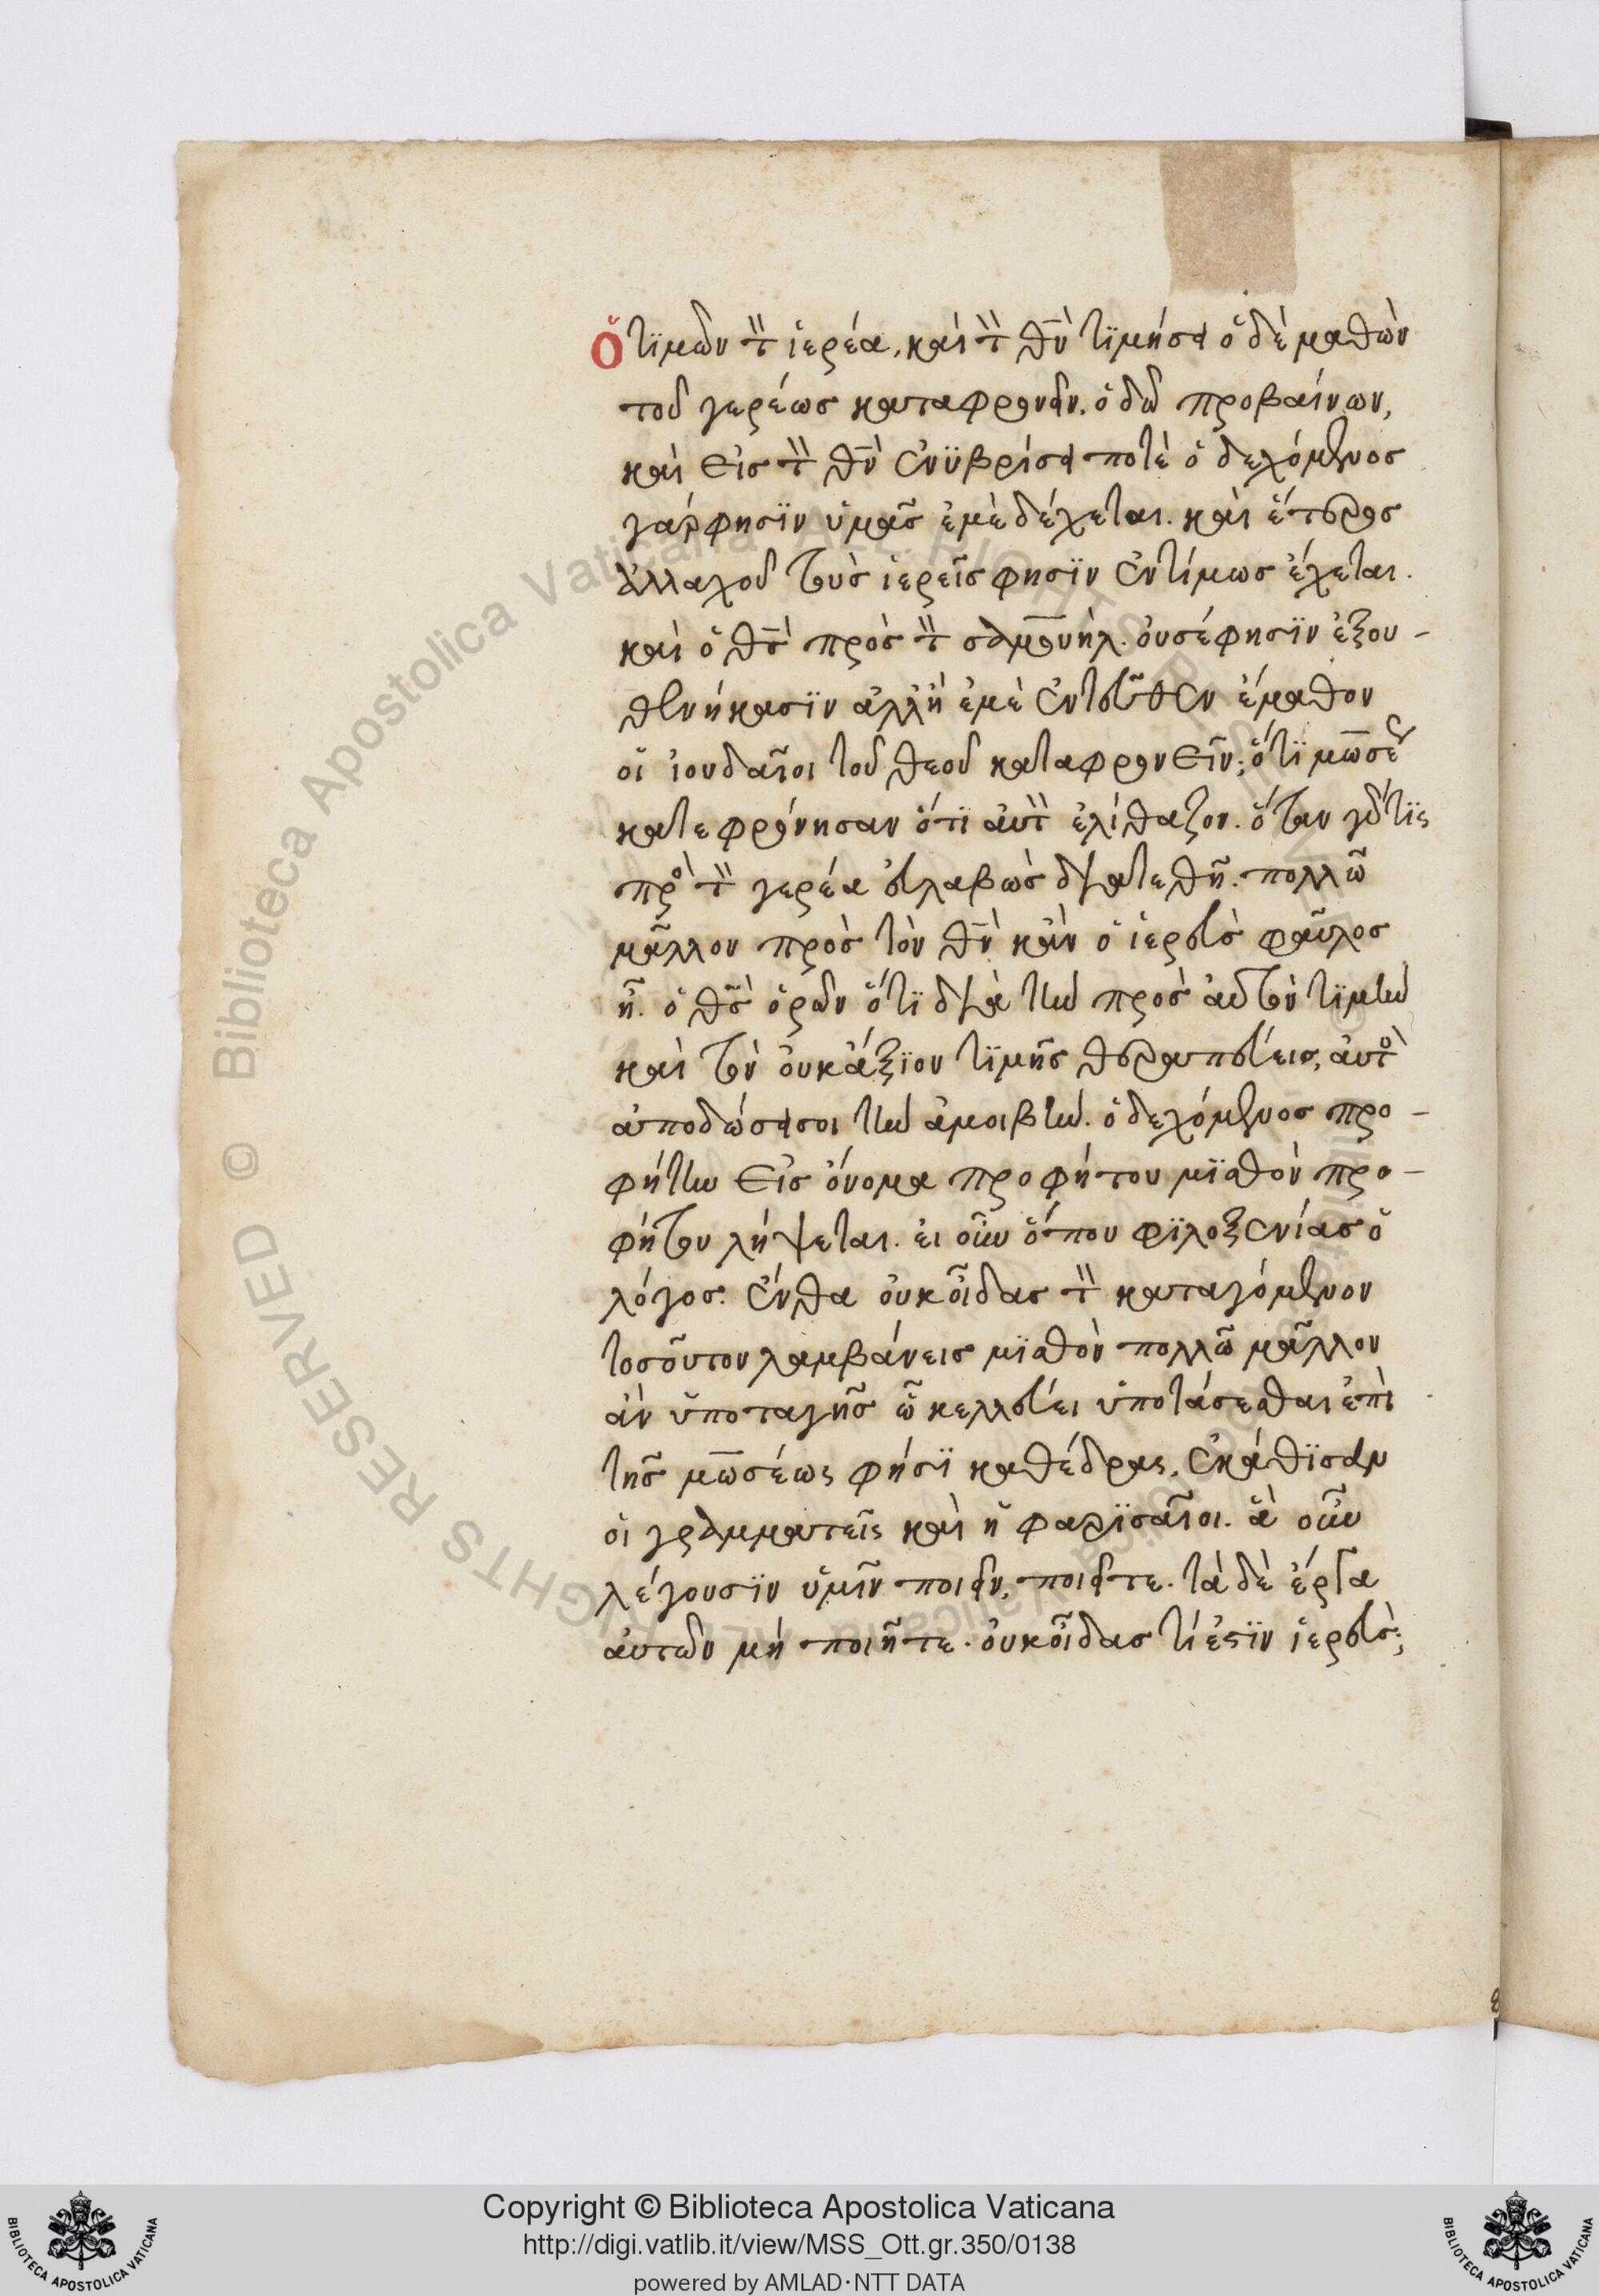 Ὁ τϊμῶν τὸν ἱερέα, καὶ τὸν θν̅ τϊμήσει ὁ δὲ μαθὼν
τοῦ γερέως καταφρονεῖν. ὁδῶ προβαίνων,
καὶ εἰς τὸν θν̅ ἐνϋβρίσει ποτὲ ὁ δεχόμενος
γάρ φησϊν ὑμᾶς ἐμὲ δέχεται. καὶ ἕτερος
ἀλλαχοῦ τοὺς ἱερεῖς φησϊν ἐντίμως ἔχεται.
καὶ ὁ θς̅ πρὸς τὸν σαμουήλ. οὐ σέ φησϊν ἐξου-
θενήκασϊν ἀλλ' ἢ ἐμὲ ἐντεῦθεν ἔμαθον
οἱ ἰουδαῖοι τοῦ θεοῦ καταφρονεῖν; ὅτϊ μωσέως
κατεφρόνησαν ὅτϊ αὐτὸν ἐλίθαζον. ὅταν γάρ τϊς
πρὸς τὸν γερέα εὐλαβῶς διατεθῆ. πολλῶ
μᾶλλον πρὸς τὸν θν̅ κἂν ὁ ἱερεὺς φαῦλος
ἦ. ὁ θς̅ ὁρῶν ὅτϊ διὰ τὴν πρὸς αὐτὸν τϊμὴν
καὶ τὸν οὐκ ἄξϊον τϊμῆς θεραπεύεις, αὐτὸς
ἀποδώσει σοι τὴν ἀμοιβήν. ὁ δεχόμενος προ-
φήτην εἰς ὄνομα προφήτου μϊσθὸν προ-
φήτου λήψεται. εἰ οὖν ὅπου φϊλοξενίας ὁ
λόγος. ἔνθα οὐκ οἶδας τὸν καταγόμενον
τοσοῦτον λαμβάνεις μϊσθὸν πολλῶ μᾶλλον
ἂν ὑποταγῆς ὧ κελλεύει ὑποτάσεσθαι ἐπὶ
τῆς μωσέως φήσϊ καθέδρας, ἐκάθϊσαν
οἱ γραμματεῖς καὶ ἡ φαρϊσαῖοι. ἃ οὖν
λέγουσϊν ὑμῖν ποιεῖν, ποιεῖτε. τὰ δὲ ἔργα
αὐτῶν μὴ ποιῆτε. οὐκ οἶδας τί ἐστϊν ἱερεύς;
Copyright © Biblioteca Apostolica Vaticana
http://digi.vatlib.it/view/MSS_Ott.gr.350/0138
powered by AMLAD·NTT DATA